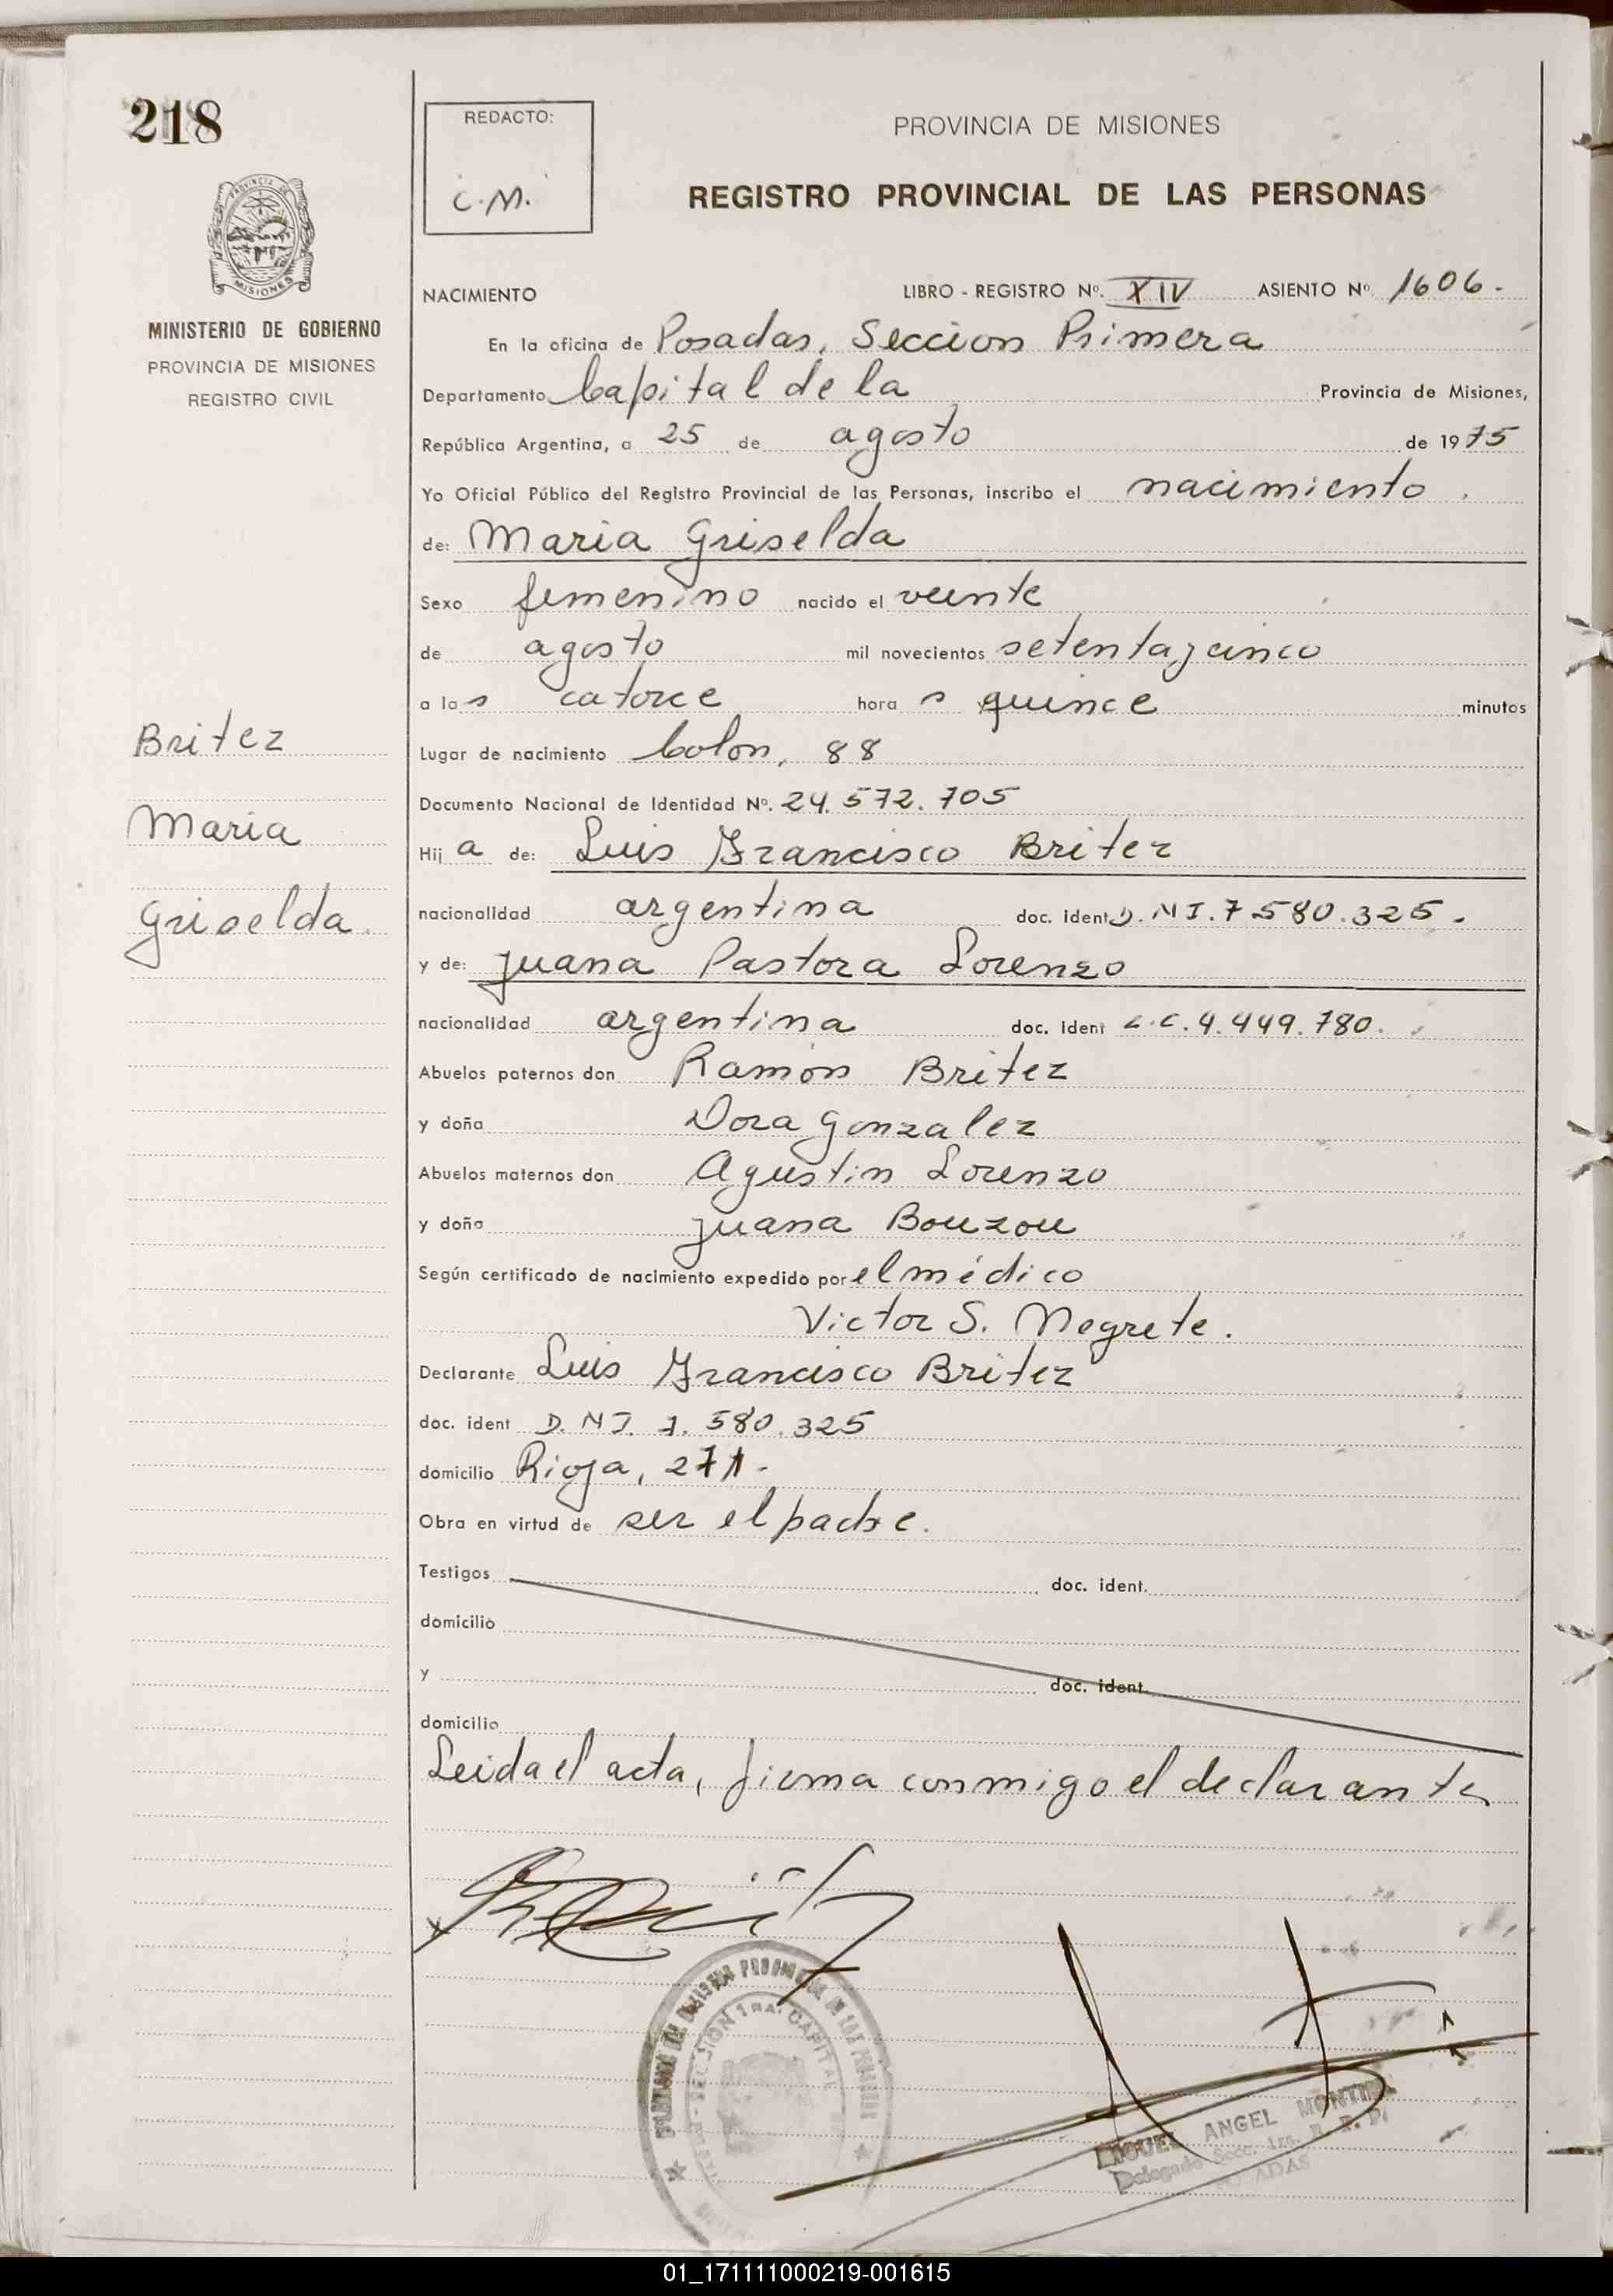 218
REDACTO:
C.M.
PROVINCIA DE MISIONES
REGISTRO PROVINCIAL DE LAS PERSONAS
PROVINCIA DE
MISIONES
MINISTERIO DE GOBIERNO
PROVINCIA DE MISIONES
REGISTRO CIVIL
NACIMIENTO LIBRO - REGISTRO Nº. XIV ASIENTO Nº. 1606.
En la oficina de Posadas, Seccion Primera
Departamento Capital de la Provincia de Misiones,
República Argentina, a 25 de agosto de 1975
Yo Oficial Público del Registro Provincial de las Personas, inscribo el nacimiento
de: Maria Griselda
Sexo femenino nacido el veinte
de agosto mil novecientos setentaycinco
a las catorce horas quince minutos
Britez
Maria
Griselda
Lugar de nacimiento Colon, 88
Documento Nacional de Identidad Nº. 24.572.705
Hija de: Luis Francisco Britez
nacionalidad argentina doc. ident D.NI.7580.325.
y de: Juana Pastora Lorenzo
nacionalidad argentina doc. ident L.C.4.449.780.
Abuelos paternos don Ramón Britez
y doña Dora Gonzalez
Abuelos maternos don Agustin Lorenzo
y doña Juana Bouzou
Según certificado de nacimiento expedido por el médico
Victor S. Negrete.
Declarante Luis Francisco Britez
doc. ident D.NI. 7.580.325
domicilio Rioja, 271-
Obra en virtud de ser el padre.
Testigos doc. ident.
domicilio
y doc. ident.
domicilio
Leida el acta, firma conmigo el declarante
SECCION 1RA. CAPITAL
MIGUEL ANGEL
Delegado Secc. 1ra. R. P. P.
POSADAS
01_171111000219-001615